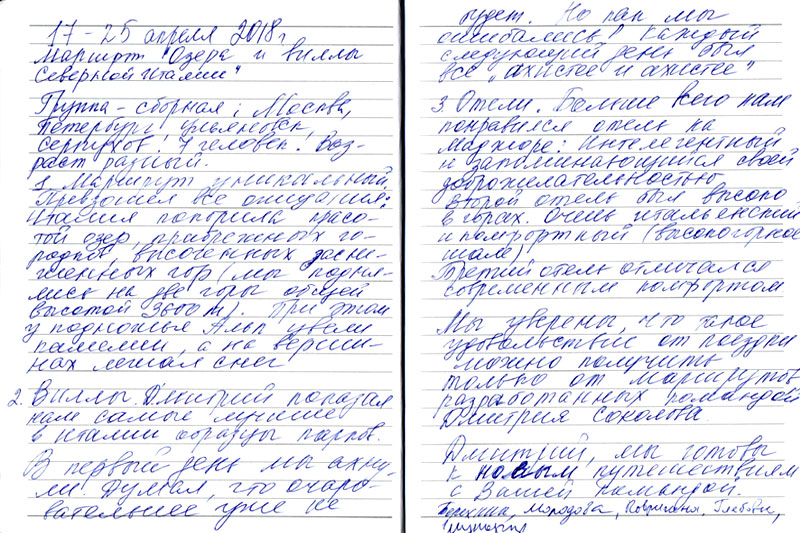 17 – 25 апреля 2018г
Маршрут "Озера и виллы
северной Италии"
Группа – сборная: Москва,
Петербург, Ульяновск,
Серпухов. 7 человек. Воз-
раст разный.
1. Маршрут уникальный.
Превзошел все ожидания:
Италия покорила красо-
той озер, прибрежных го-
родков, высоченных засне-
женных гор (мы подня-
лись на две горы общей
высотой 3600 м). При этом
у подножья Альп цвели
камелии, а на верши-
нах лежал снег
2. Виллы. Дмитрий показал
нам самые лучшие
в Италии образцы парков.
В первый день мы ахну-
ли. Думал, что очаро-
вательнее уже не
будет. Но как мы
ошибались! Каждый
следующий день был
все "ахистее и ахистее"
3. Отели. Больше всего нам
понравился отель на
Маджоре: Интелегентный
и запоминающийся своей
доброжелательностью
Второй отель был высоко
в горах. Очень итальянский
и комфортный (высокогорное
шале)
Третий отель отличался
современным комфортом
Мы уверены, что такое
удовольствие от поездки
можно получить
только от маршрутов,
разработанных командой
Дмитрия Соколова.
Дмитрий, мы готовы
к новым путешествиям
с Вашей командой.
Морозова,